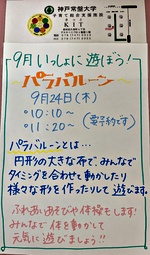 神戸常盤大学
子育て総合支援施設
KIT
9月 いっしょに 遊ぼう!
パラバルーン
9月24日(木)
・10:10～
・11:20～
(要予約です)
パラバルーンとは…
円形の大きな布で、みんなで
タイミングを合わせて動かしたり
様々な形を作ったりして 遊びます。
ふれあいあそびや 体操もします!
みんなで 体を動かして
元気に 遊びましょう!!